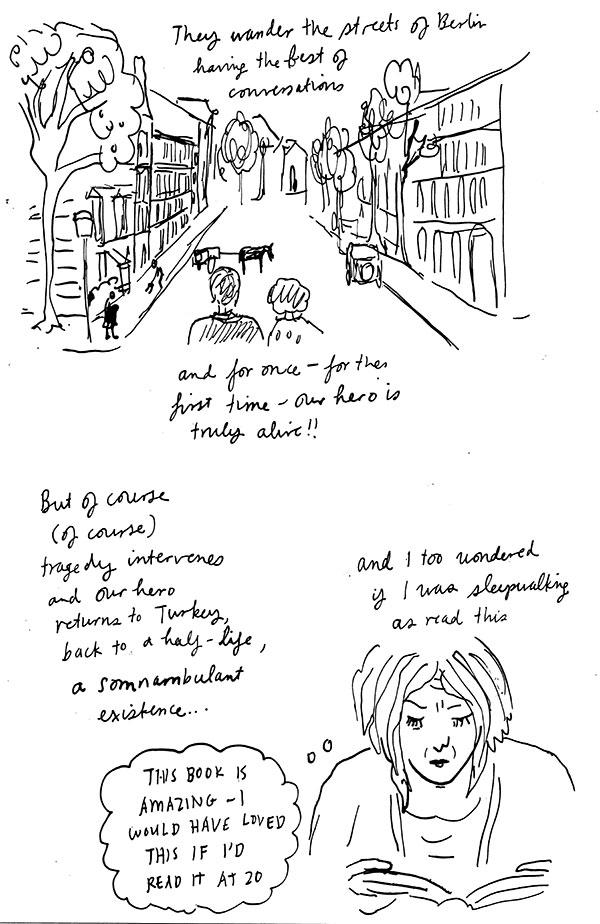 They wander the streets of Berlin
having the best of
conversations
and for once – for the
first time – our hero is
truly alive!!
But of course
(of course)
tragedy intervenes
and our hero
returns to Turkey,
back to a half-life,
a somnambulant
existence...
and I too wondered
if I was sleepwalking
as read this
THIS BOOK IS
AMAZING – I
WOULD HAVE LOVED
THIS IF I'D
READ IT AT 20